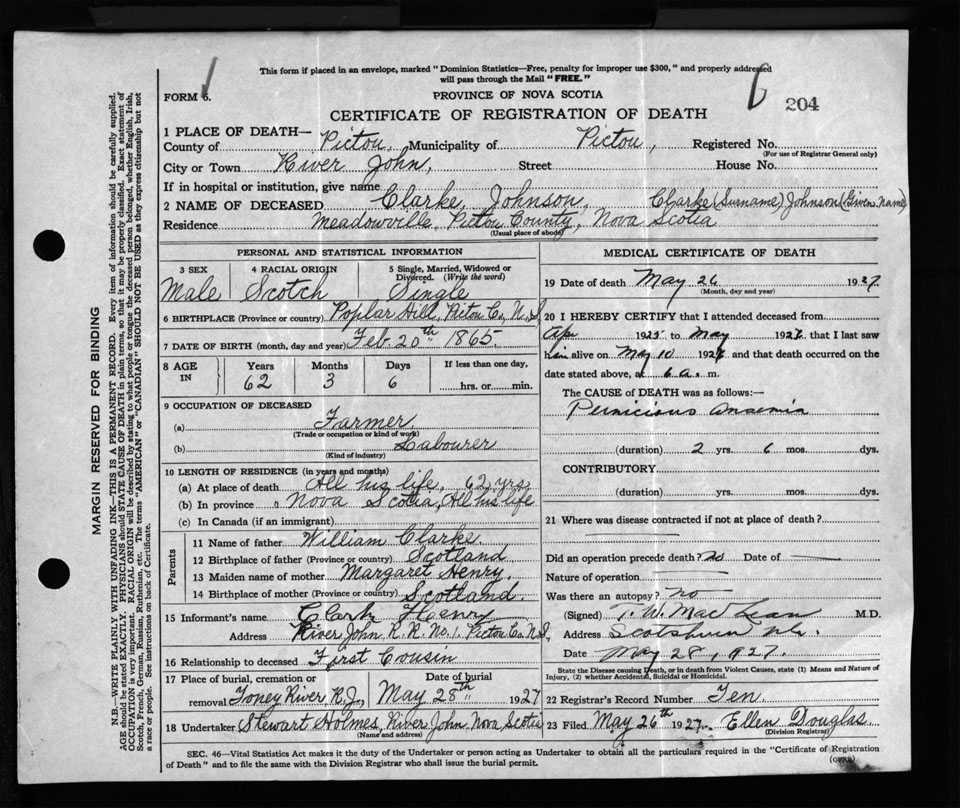 This form if placed in an envelope, marked "Dominion Statistics—Free, penalty for improper use $300," and properly addressed
will pass through the Mail "FREE."
FORM 6.
PROVINCE OF NOVA SCOTIA
6 204
CERTIFICATE OF REGISTRATION OF DEATH
1 PLACE OF DEATH—
County of Pictou, Municipality of Pictou, Registered No.
(For use of Registrar General only)
City or Town River John, Street House No.
If in hospital or institution, give name
2 NAME OF DECEASED Clarke, Johnson, Clarke (Surname) Johnson (Given Name)
Residence Meadowville, Pictou County, Nova Scotia
(Usual place of abode)
PERSONAL AND STATISTICAL INFORMATION
3 SEX 4 RACIAL ORIGIN 5 Single, Married, Widowed or
Divorced. (Write the word)
Male Scotch Single
6 BIRTHPLACE (Province or country) Poplar Hill, Pictou Co, N.S.
7 DATE OF BIRTH (month, day and year) Feb. 20th 1865.
8 AGE IN Years Months Days If less than one day,
62 3 6 hrs. or min.
9 OCCUPATION OF DECEASED
(a) Farmer
(Trade or occupation or kind of work)
(b) Labourer
(Kind of industry)
10 LENGTH OF RESIDENCE (in years and months)
(a) At place of death All his life. 62 yrs.
(b) In province " Nova Scotia, All his life
(c) In Canada (if an immigrant)
Parents
11 Name of father William Clarke
12 Birthplace of father (Province or country) Scotland
13 Maiden name of mother Margaret Henry.
14 Birthplace of mother (Province or country) Scotland.
15 Informant's name Clark Henry
Address River John R.R. No. 1. Pictou Co. N.S.
16 Relationship to deceased First Cousin
17 Place of burial, cremation or Date of burial
removal Toney River, R.J., May 28th 1927
18 Undertaker Stewart Holmes, River John, Nova Scotia
(Name and address)
MEDICAL CERTIFICATE OF DEATH
19 Date of death May 26 1927
(Month, day and year)
20 I HEREBY CERTIFY that I attended deceased from
Apr 1925 to May 1927 that I last saw
him alive on May 10 1927 and that death occurred on
date stated above, at 6 a. m.
The CAUSE of DEATH was as follows:—
Pernicious anaemia
(duration) 2 yrs. 6 mos. dys.
CONTRIBUTORY.
(duration) yrs. mos. dys.
21 Where was disease contracted if not at place of death?
Did an operation precede death? No Date of
Nature of operation
Was there an autopsy? no
(Signed) T. W. MacLean M.D.
Address Scotsburn N.S.
Date May 28, 1927.
State the Disease causing Death, or in death from Violent Causes, state (1) Means and Nature of
Injury, (2) whether Accidental, Suicidal or Homicidal.
22 Registrar's Record Number Ten.
23 Filed May 26th 1927. Ellen Douglas
(Division Registrar)
SEC. 46—Vital Statistics Act makes it the duty of the Undertaker or person acting as Undertaker to obtain all the particulars required in the "Certificate of Registration
of Death" and to file the same with the Division Registrar who shall issue the burial permit.
(OVER)
MARGIN RESERVED FOR BINDING
N.B.—WRITE PLAINLY WITH UNFADING INK—THIS IS A PERMANENT RECORD. Every item of information should be carefully supplied.
AGE should be stated EXACTLY. PHYSICIANS should STATE CAUSE OF DEATH in plain terms, so that it may be properly classified. Exact statement of
OCCUPATION is very important. RACIAL ORIGIN will be described by stating to what people or tongue the deceased person belonged, whether English, Irish,
Scotch, French, German, Russian, Ruthenian, etc. The terms "AMERICAN" or "CANADIAN" SHOULD NOT BE USED as they express citizenship but not
a race or people. See instructions on back of Certificate.